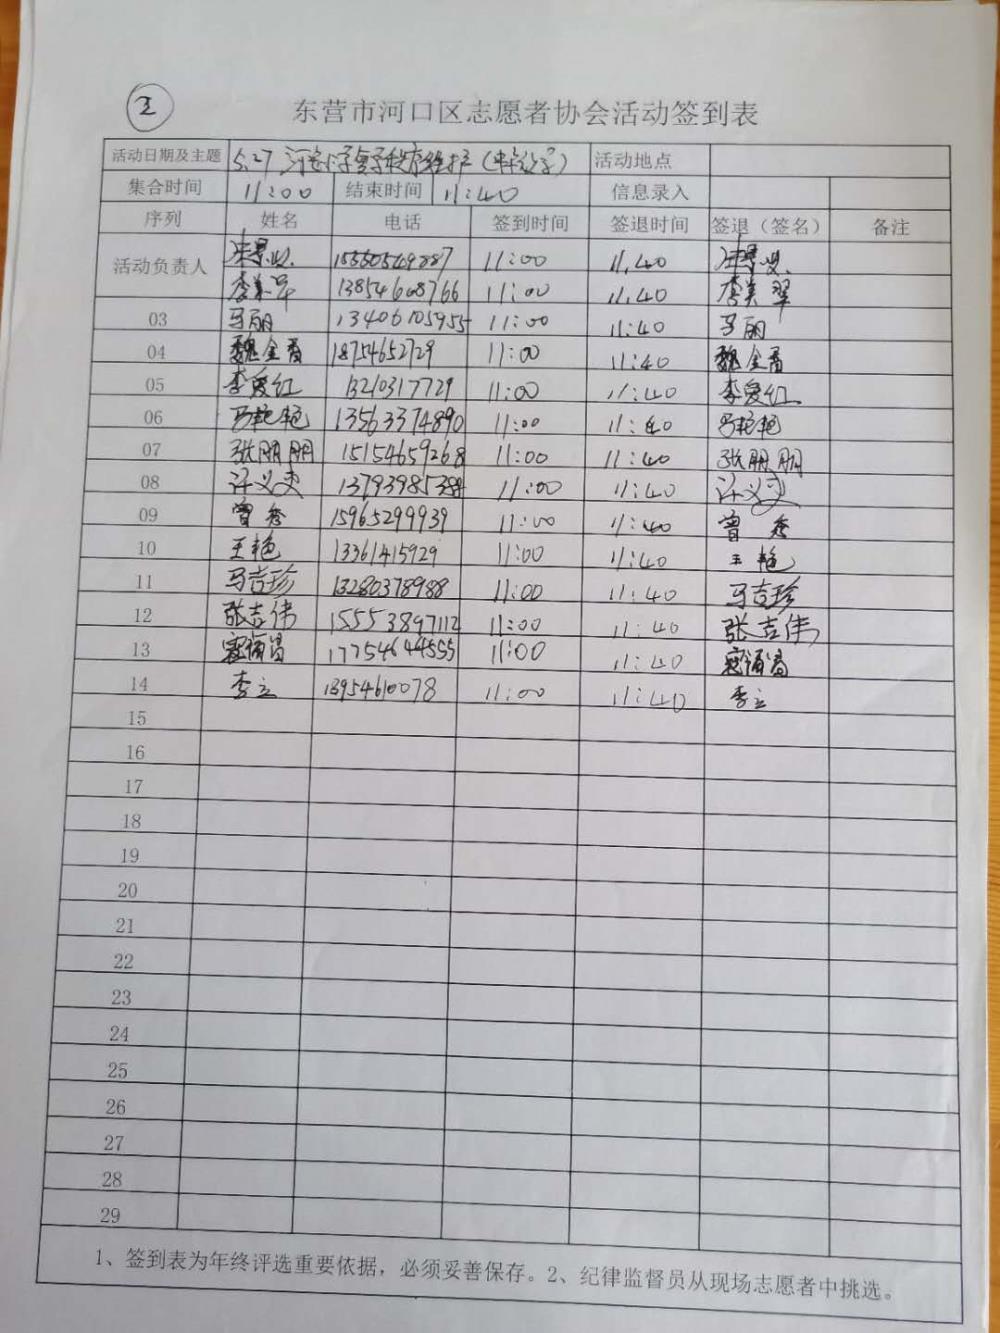 东营市河口区志愿者协会活动签到表
活动日期及主题 5.27 河安小学复学秩序维护(中午放学) 活动地点
集合时间 11:00 结束时间 11:40 信息录入
序列 姓名 电话 签到时间 签退时间 签退（签名） 备注
活动负责人 15550549887 11:00 11.40
李美翠 13854608766 11:00 11.40 李美翠
03 马丽 13406105955 11:00 11:40 马丽
04 魏金香 18754652729 11:00 11:40 魏金香
05 李爱红 13210317729 11:00 11:40 李爱红
06 马艳艳 13563374890 11:00 11:40 马艳艳
07 张朋朋 15154659268 11:00 11:40 张朋朋
08 许义 13793985384 11:00 11:40 许义
09 曾秀 15965299939 11:00 11:40 曾秀
10 王艳 13361415929 11:00 11:40 王艳
11 马吉珍 13280378988 11:00 11:40 马吉珍
12 张吉伟 15553897112 11:00 11:40 张吉伟
13 17754644555 11:00 11:40
14 李立 13954610078 11:00 11:40 李立
15
16
17
18
19
20
21
22
23
24
25
26
27
28
29
1、签到表为年终评选重要依据，必须妥善保存。2、纪律监督员从现场志愿者中挑选。